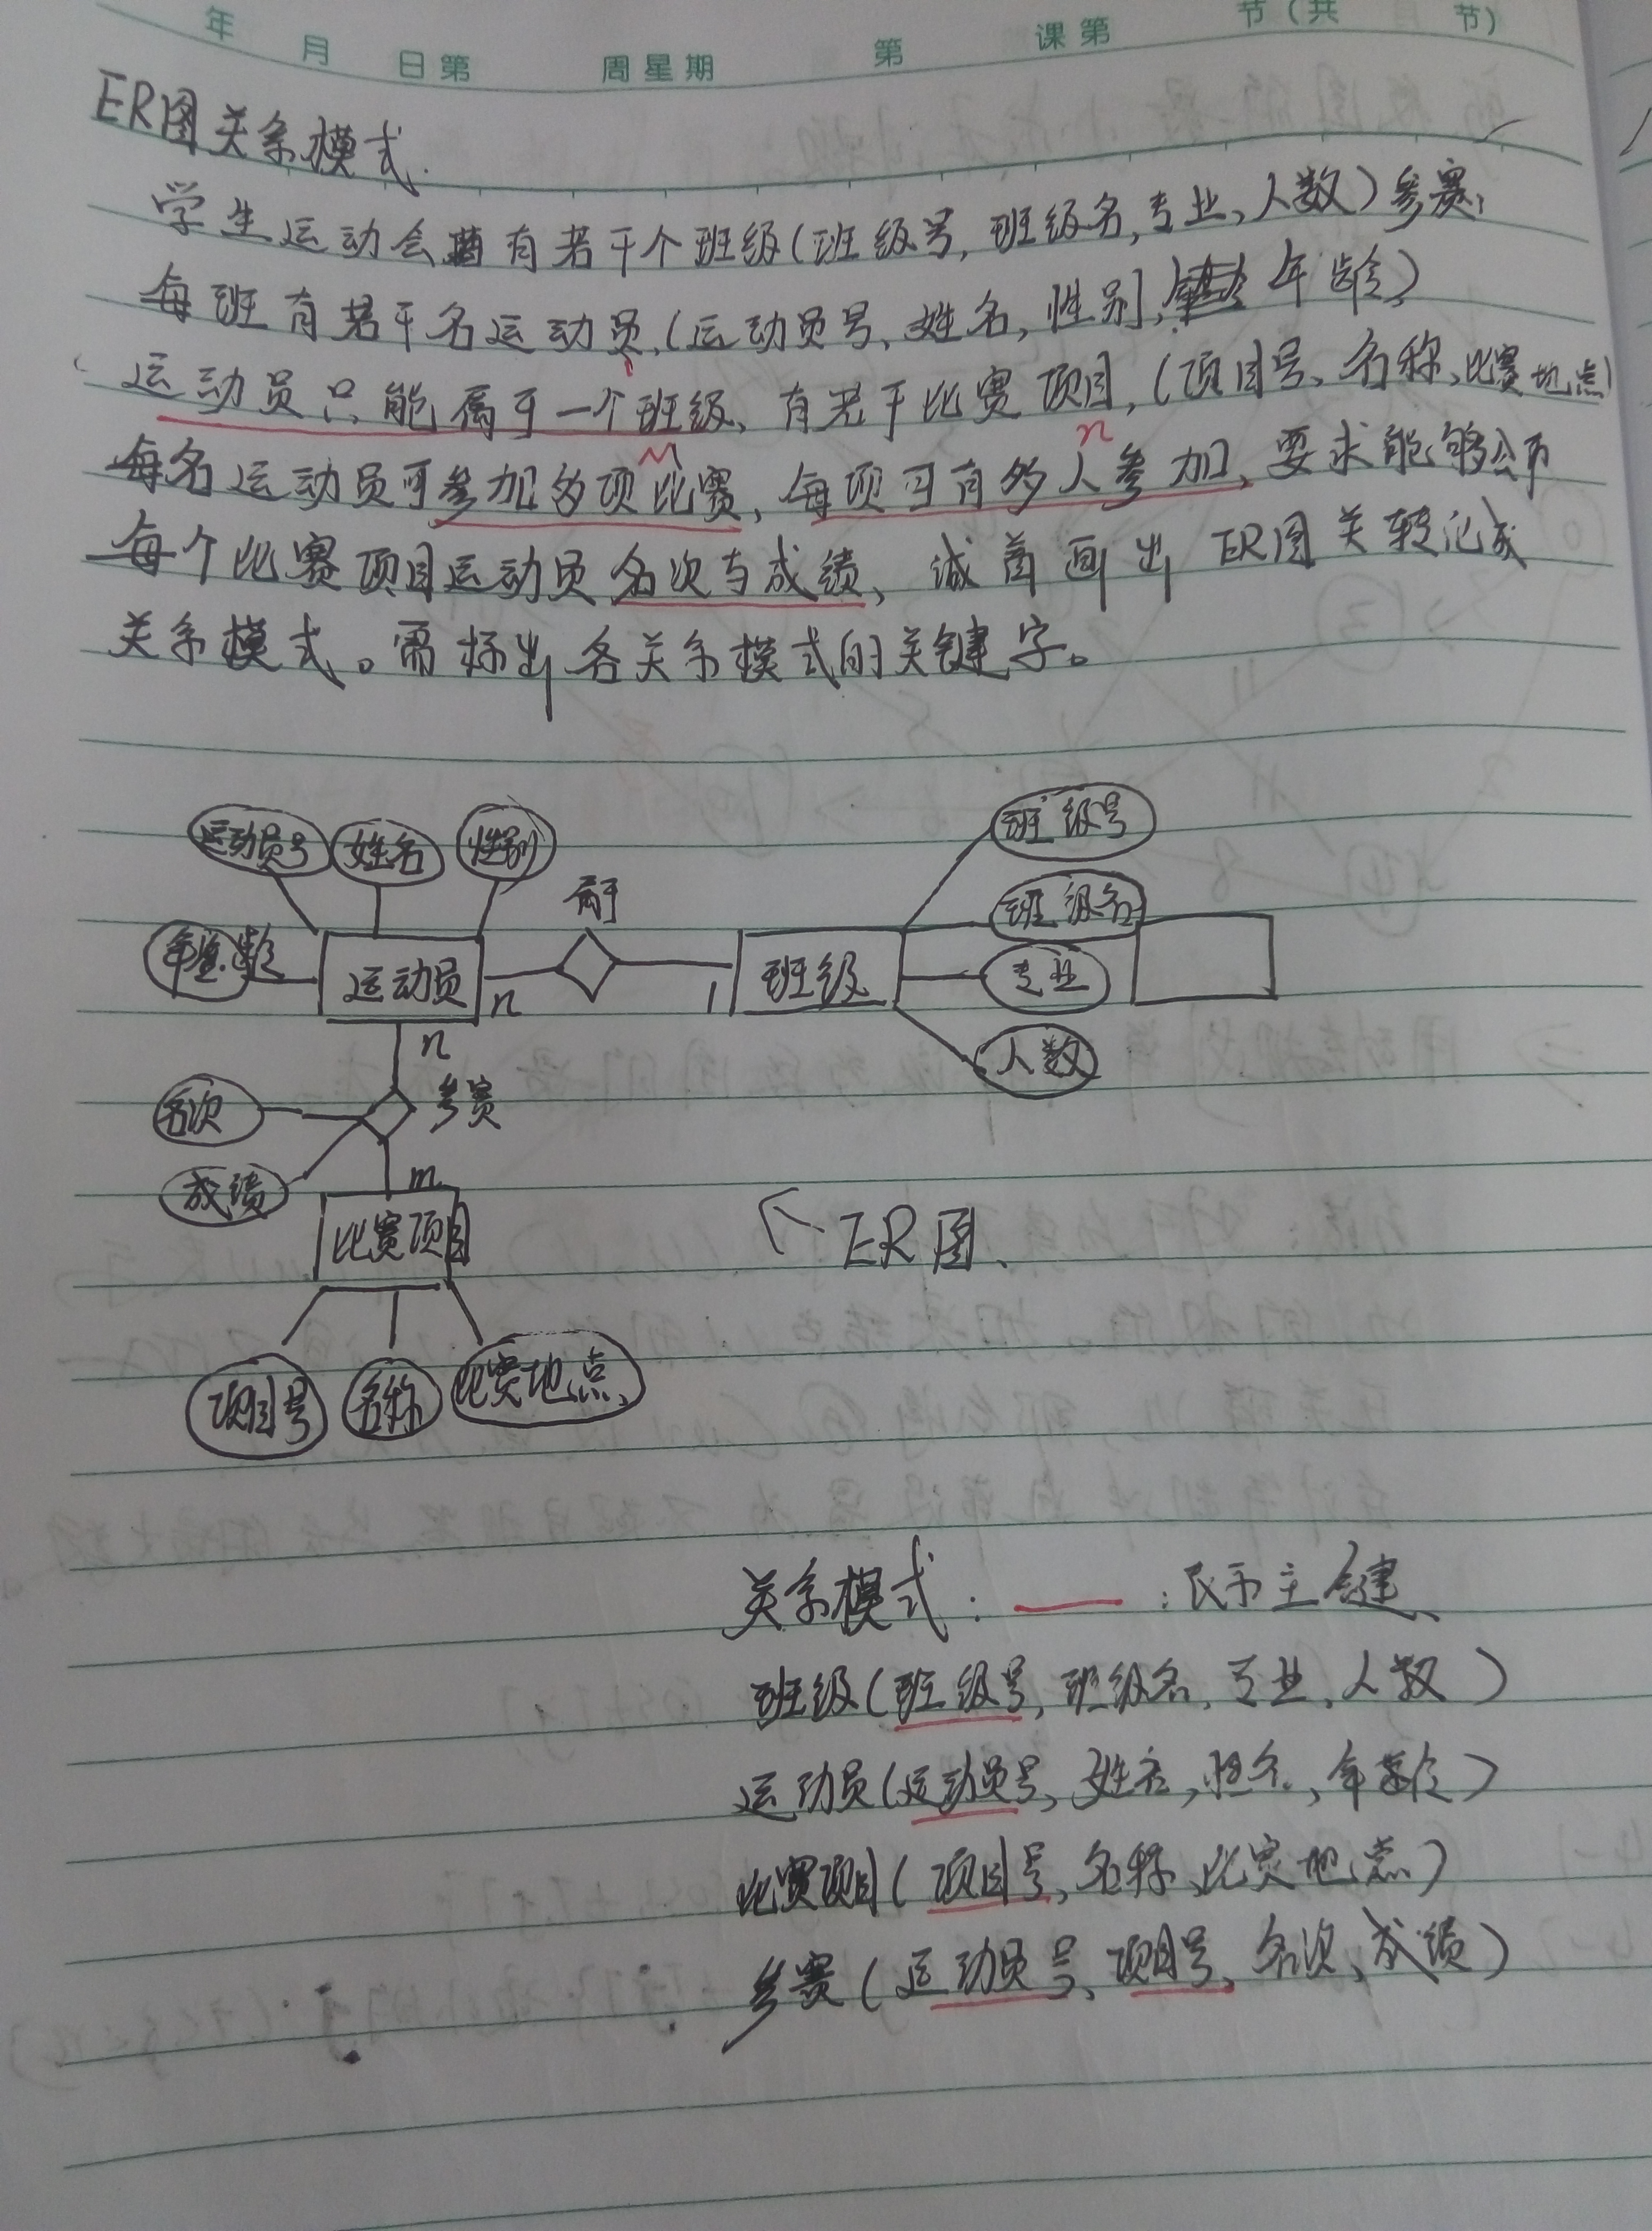 年 月 日 第 周 星 期 第 课 第 节 (共 节)
ER图关系模式.
学生运动会有若干个班级(班级号, 班级名, 专业, 人数)参赛,
每班有若干名运动员,(运动员号, 姓名, 性别, 年龄)
运动员只能属于一个班级、有若干比赛项目,(项目号、名称、比赛地点)
M n
每名运动员可参加多项比赛, 每项可有多人参加, 要求能够公布
每个比赛项目运动员名次与成绩, 试首画出ER图关转化成
关系模式。需标出各关系模式的关键字。
运动员号 姓名 性别 属于 班级号
班级名
年龄 运动员 n 1 班级 专业
n 人数
名次 参赛
成绩 m
比赛项目 ER图、
项目号 名称 比赛地点
关系模式: : 表示主键、
班级(班级号, 班级名, 专业, 人数)
运动员(运动员号, 姓名, 性别, 年龄)
比赛项目(项目号, 名称、比赛地点)
参赛(运动员号、项目号、名次、成绩)